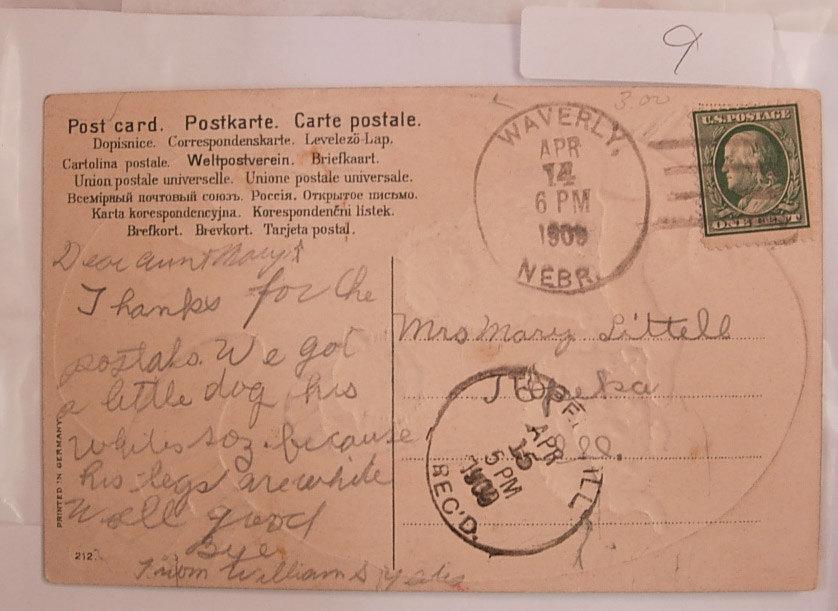 9
3.00
Post card. Postkarte. Carte postale.
Dopisnice. Correspondenskarte. Levelező-Lap.
Cartolina postale. Weltpostverein. Briefkaart.
Union postale universelle. Unione postale universale.
Всемірный почтовый союзъ. Россія. Открытое письмо.
Karta korespondencyjna. Korespondenční listek.
Brefkort. Brevkort. Tarjeta postal.
WAVERLY,
APR
14
6 PM
1909
NEBR.
U.S. POSTAGE
ONE CENT
Dear aunt Mary
Thanks for the
postals. We got
a little dog his
because
his legs are white
Well good
Bye
From William
Mrs Mary Littell
Topeka
Ill.
TOPE ILL
APR
15
5 PM
1909
REC'D.
PRINTED IN GERMANY
212